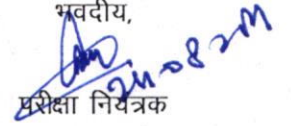 भवदीय,
परीक्षा नियंत्रक